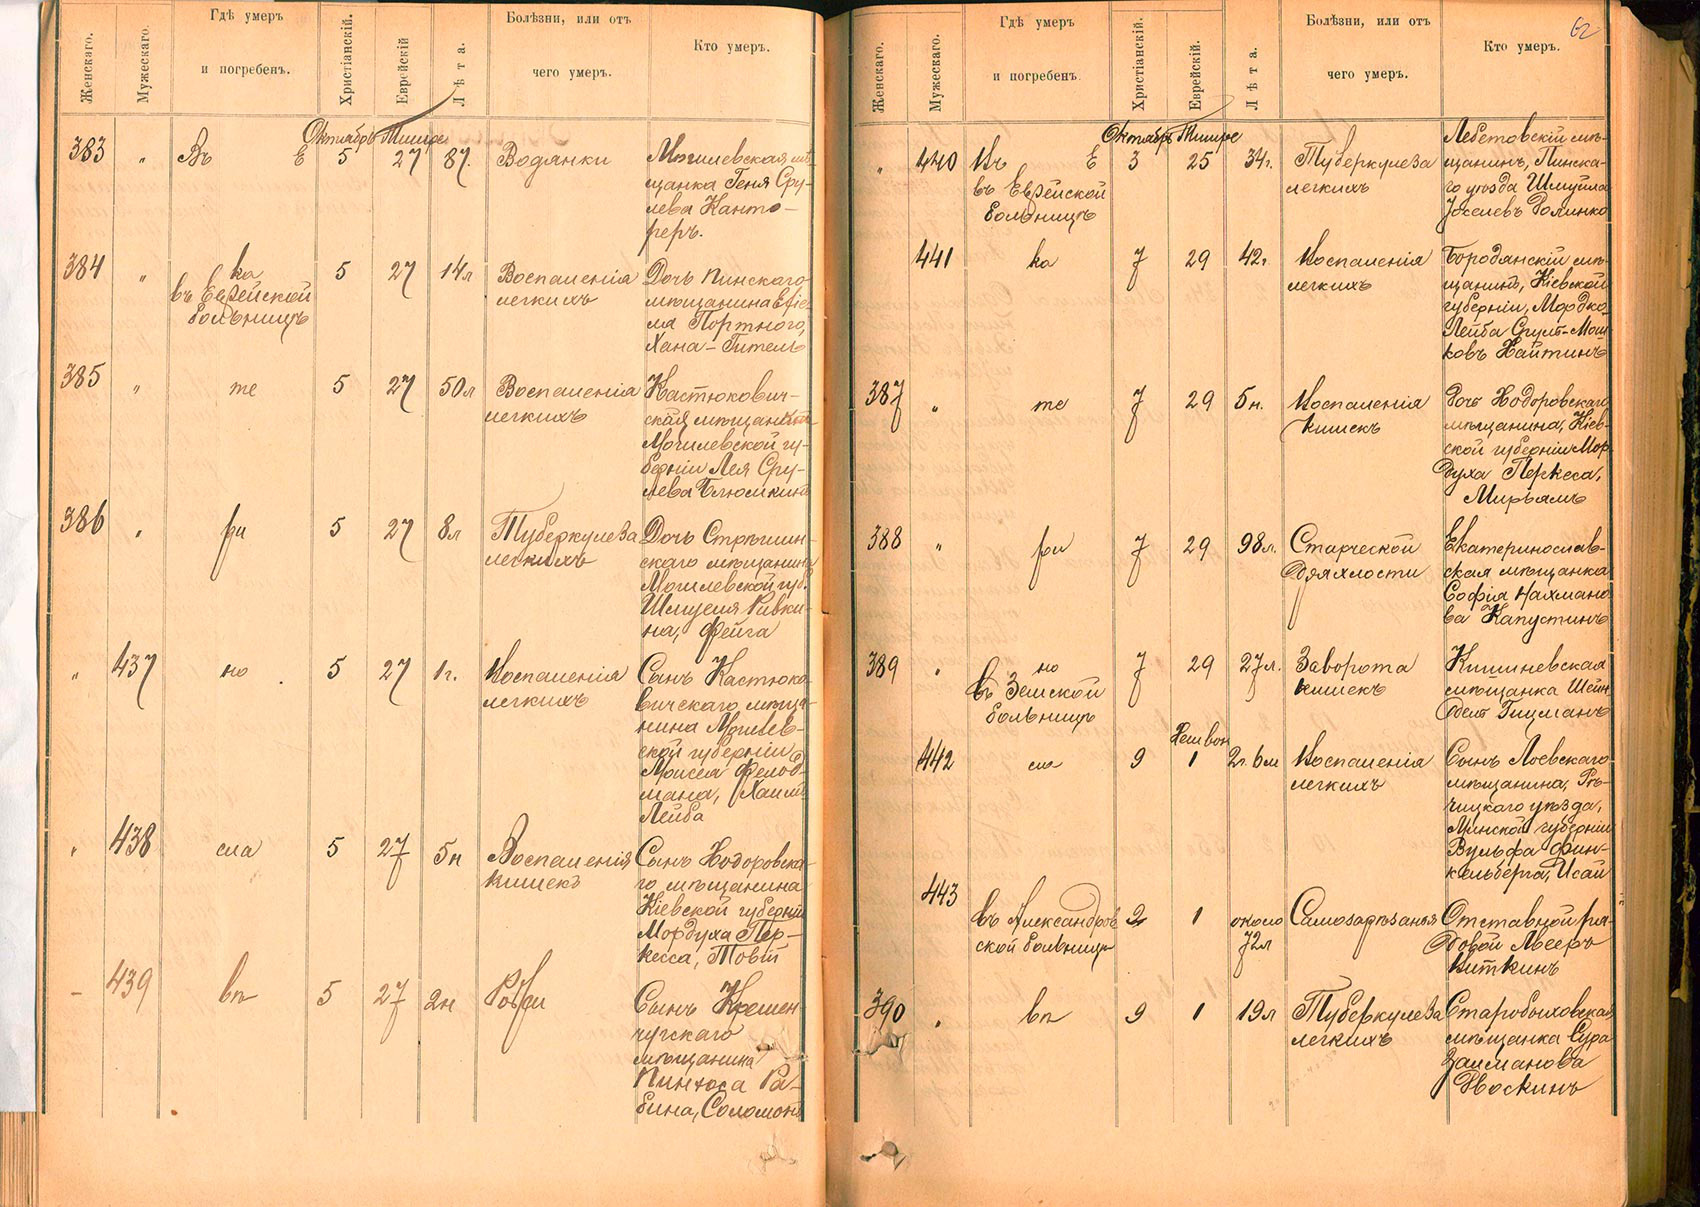 Женскаго.
Мужескаго.
Гдѣ умеръ
и погребенъ.
Христіанскій.
Еврейскій
Лѣта.
Болѣзни, или отъ
чего умеръ.
Кто умеръ.
Октябрь Тишре
383 " Въ Е 5 27 87. Водянки
Могилевская мѣ-
щанка Геня Сру-
лева Канто-
реръ.
384 " ка 5 27 14л Воспаленія
въ Еврейской легкихъ
больницѣ
Дочь Пинскаго
мѣщанина
Портного,
Хана-Гитель
385 " те 5 27 50л Воспаленія
легкихъ
Костюкович-
ская мѣщанка
Могилевской гу-
берніи Лея Сру-
лева Блюмкина
386 " ри 5 27 8л Туберкулеза
легкихъ
Дочь Стрѣшин-
скаго мѣщанина
Могилевской губ.
Шмуеля Ривки-
на, Фейга
" 437 но 5 27 1г. Воспаленія
легкихъ
Сынъ Костюко-
вичскаго мѣща-
нина Могилев-
ской губерніи
Моисея Фельд-
мана, Хаимъ
Лейба
" 438 сла 5 27 5н Воспаленія
кишекъ
Сынъ Ходоровска-
го мѣщанина
Кіевской губерніи
Мордуха Пер-
кесса, Товій
- 439 вл 5 27 2н
Сынъ Кремен-
чугскаго
мѣщанина
Пинхоса Ра-
бина, Соломонъ
62
Женскаго.
Мужескаго.
Гдѣ умеръ
и погребенъ.
Христіанскій.
Еврейскій.
Лѣта.
Болѣзни, или отъ
чего умеръ.
Кто умеръ.
Октябрь Тишре
" 440 Въ Е 3 25 34г. Туберкулеза
въ Еврейской легкихъ
больницѣ
мѣ-
щанинъ, Пинска-
го уѣзда Шмуйла
441 ка 7 29 42г. Воспаленія
легкихъ
Бородянскій мѣ-
щанинъ, Кіевской
губерніи, Мордко-
Лейба Срулъ-Мош-
ковъ Хайтинъ
387 " те 7 29 5н. Воспаленія
кишекъ
Дочь Ходоровскаго
мѣщанина, Кіев-
ской губерніи Мор-
духа Перкеса,
Мирьямъ
388 " ри 7 29 98л. Старческой
дряхлости
Екатеринослав-
ская мѣщанка
Софія Нахмано-
ва Капустинъ
389 " но 7 29 27л. Заворота
въ Земской кишекъ
больницѣ
Кишиневская
мѣщанка Шейн
Гицманъ
Хешвон
442 сла 9 1 2г 6м Воспаленія
легкихъ
Сынъ Лоевскаго
мѣщанина, Рѣ-
чицкаго уѣзда,
Минской губерніи
Вульфа Фин-
кельберга, Исай
443
въ Александров- 2 1 около Самозарѣзанья
ской больницѣ 72л
Отставной ря-
довой Авсеръ
Виткинъ
390 " вл 9 1 19л Туберкулеза
легкихъ
Старобыховская
мѣщанка Сура
Залманова
Двоскинъ